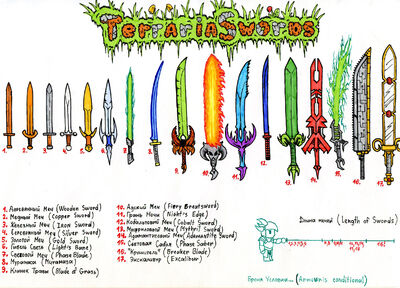 Terraria Swords
1. 2. 3. 4. 5. 6. 7. 8. 9. 10. 11. 12. 13. 14. 15. 16. 17.
1. Деревянный Меч (Wooden Sword)
2. Медный Меч (Copper Sword)
3. Железный Меч (Iron Sword)
4. Серебряный Меч (Silver Sword)
5. Золотой Меч (Gold Sword)
6. Гибель Света (Light's Bane)
7. Световой Меч (Phase Blade)
8. Мурамаса (Muramasa)
9. Клинок Травы (Blade of Grass)
10. Адский Меч (Fiery Greatsword)
11. Грань Ночи (Night's Edge)
12. Кобальтовый Меч (Cobalt Sword)
13. Мифриловый Меч (Mythril Sword)
14. Адамантитовый Меч (Adamantite Sword)
15. Световая Сабля (Phase Saber)
16. "Крушитель" (Breaker Blade)
17. Экскалибур (Excalibur)
Длина мечей (Length of Swords)
Броня Условна... (Armour is conditional)